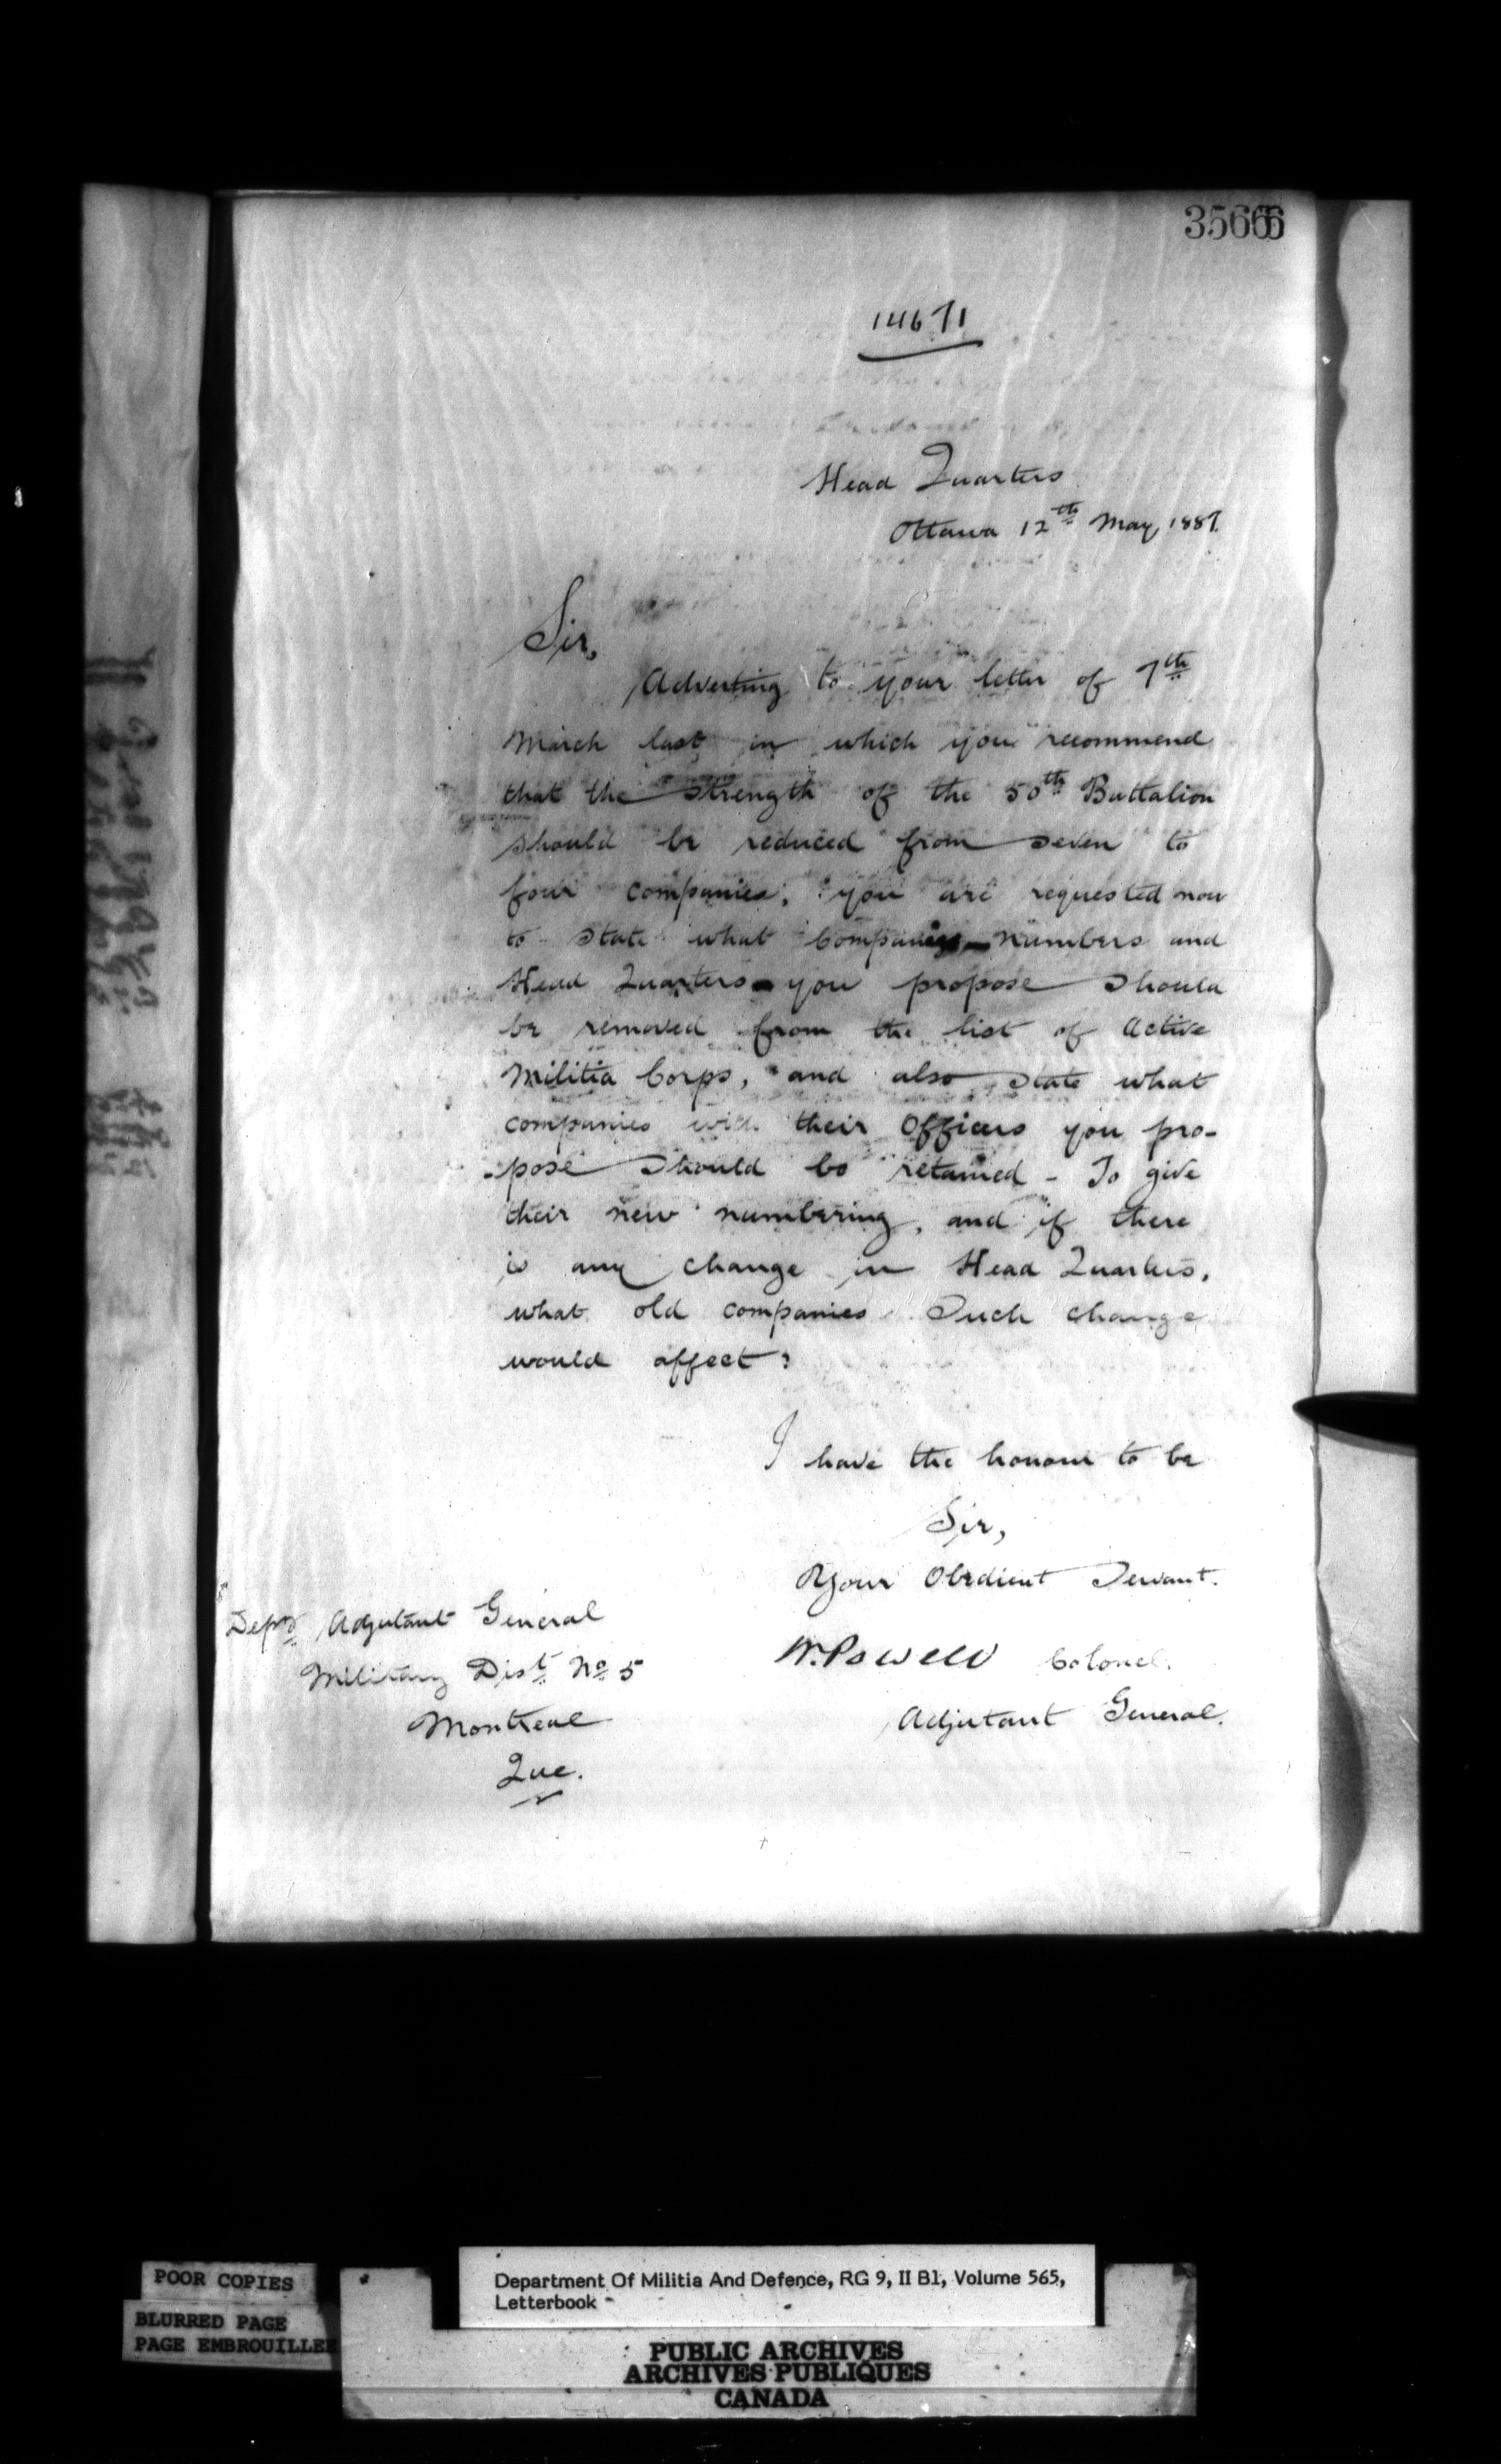 35666
14671
Head Quarters
Ottawa 12th May, 1887.
Sir,
Adverting to your letter of 7th
March last, in which you recommend
that the Strength of the 50th Battalion
should be reduced from seven to
four companies, you are requested now
to state what Companies - numbers and
Head Quarters - you propose should
be removed from the list of Active
Militia Corps, and also state what
companies with their Officers you pro-
-pose should be retained - To give
their new numbering, and if there
is any change in Head Quarters,
what old companies such change
would affect?
I have the honour to be
Sir,
Your Obedient Servant.
W. Powell Colonel.
Adjutant General.
Depy Adjutant General
Military Dist. No 5
Montreal
Que.
POOR COPIES
BLURRED PAGE
PAGE EMBROUILLEE
Department Of Militia And Defence, RG 9, II B1, Volume 565,
Letterbook -
PUBLIC ARCHIVES
ARCHIVES PUBLIQUES
CANADA